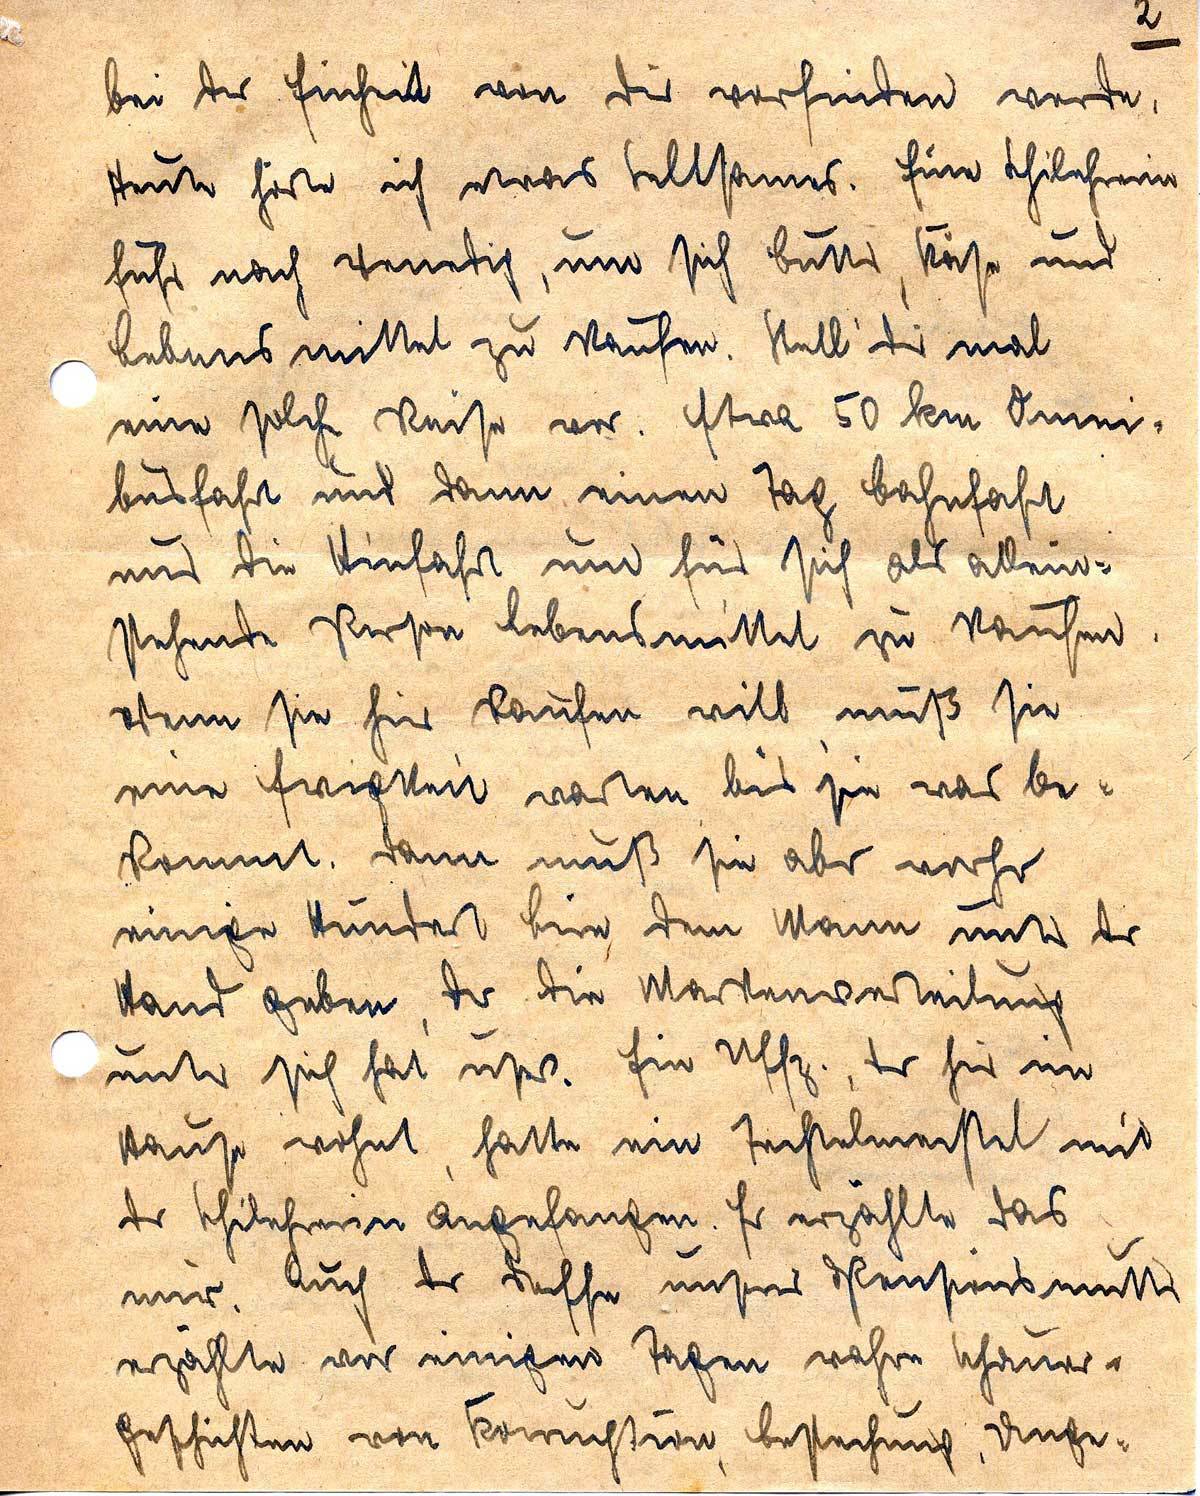 2
bei der Einheit von dir vorfinden werde.
Heute hörte ich etwas Seltsames. Eine Schilehrerin
fuhr nach Venedig, um sich Butter, Käse und
Lebensmittel zu kaufen. Stell' dir mal
eine solche Reise vor. Etwa 50 km Omni-
busfahrt und dann einen Tag Bahnfahrt
nur die Hinfahrt um für sich als allein-
stehende Person Lebensmittel zu kaufen.
Wenn sie hier kaufen will, muß sie
eine Ewigkeit warten, bis sie was be-
kommt. Dann muß sie aber vorher
einige Hundert Lire dem Mann unter der
Hand geben, der die Markenverteilung
unter sich hat usw. Ein Uffz., der hier im
Hause wohnt, hatte ein Techtelmechtel mit
der Schilehrerin angefangen. Er erzählte das
mir. Auch der Neffe unserer Pensionsmutter
erzählte vor einigen Tagen wahre Schauer-
geschichten von Korruption, Bestechung, Ange-